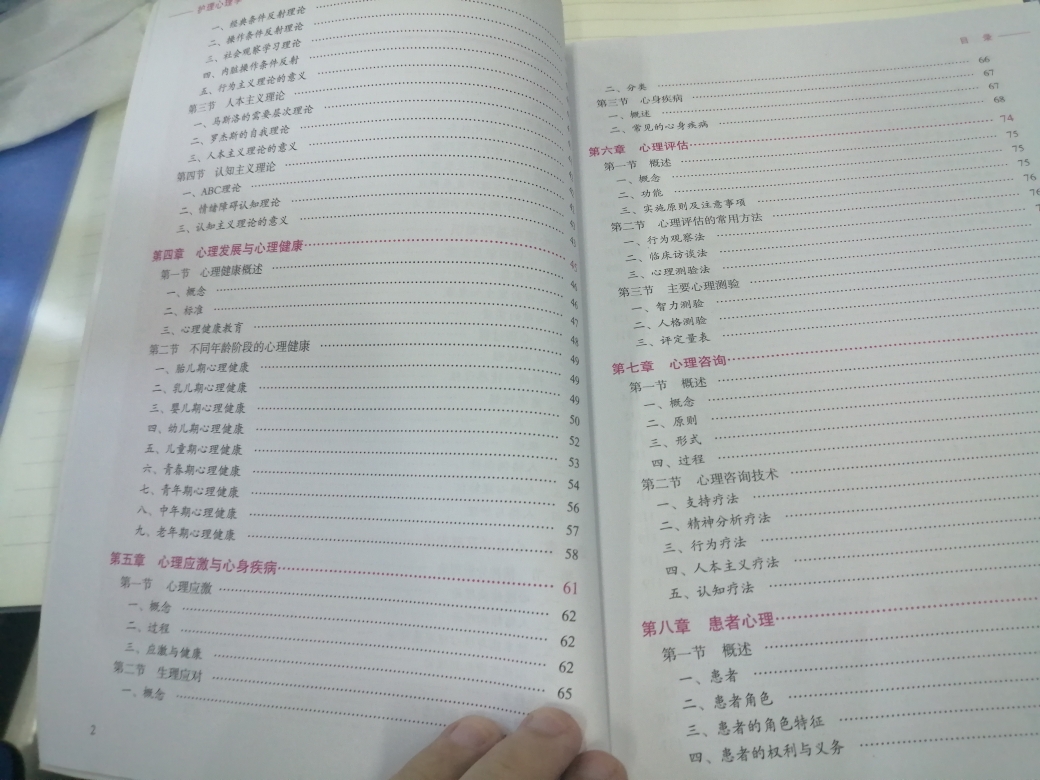 护理心理学
一、经典条件反射理论
二、操作条件反射理论
三、社会观察学习理论
四、内脏操作条件反射
五、行为主义理论的意义
第三节 人本主义理论
一、马斯洛的需要层次理论
二、罗杰斯的自我理论
三、人本主义理论的意义
第四节 认知主义理论
一、ABC理论
二、情绪障碍认知理论
三、认知主义理论的意义
第四章 心理发展与心理健康 45
第一节 心理健康概述 46
一、概念 46
二、标准 47
三、心理健康教育 48
第二节 不同年龄阶段的心理健康 49
一、胎儿期心理健康 49
二、乳儿期心理健康 49
三、婴儿期心理健康 50
四、幼儿期心理健康 52
五、儿童期心理健康 53
六、青春期心理健康 54
七、青年期心理健康 56
八、中年期心理健康 57
九、老年期心理健康 58
第五章 心理应激与心身疾病 61
第一节 心理应激 62
一、概念 62
二、过程 62
三、应激与健康 65
第二节 生理应对
一、概念
2
目 录
二、分类 66
第三节 心身疾病 67
一、概述 67
二、常见的心身疾病 68
第六章 心理评估 74
第一节 概述 75
一、概念 75
二、功能 75
三、实施原则及注意事项 76
第二节 心理评估的常用方法
一、行为观察法
二、临床访谈法
三、心理测验法
第三节 主要心理测验
一、智力测验
二、人格测验
三、评定量表
第七章 心理咨询
第一节 概述
一、概念
二、原则
三、形式
四、过程
第二节 心理咨询技术
一、支持疗法
二、精神分析疗法
三、行为疗法
四、人本主义疗法
五、认知疗法
第八章 患者心理
第一节 概述
一、患者
二、患者角色
三、患者的角色特征
四、患者的权利与义务